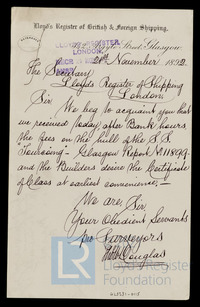 Lloyd's Register of British & Foreign Shipping.
Glasgow
LLOYD'S REGISTER
LONDON.
28th November 1892
The Secretary
Lloyds Register of Shipping
London.
Sir,
We beg to acquaint you that
we received today, after Bank hours,
the fees on the hull of the S.S.
Glasgow Report No 11899
and the Builders desire the Certificate
of Class at earliest convenience.
We are, Sir,
Your Obedient Servants
pro Surveyors
Douglas
Lloyd's Register
Foundation